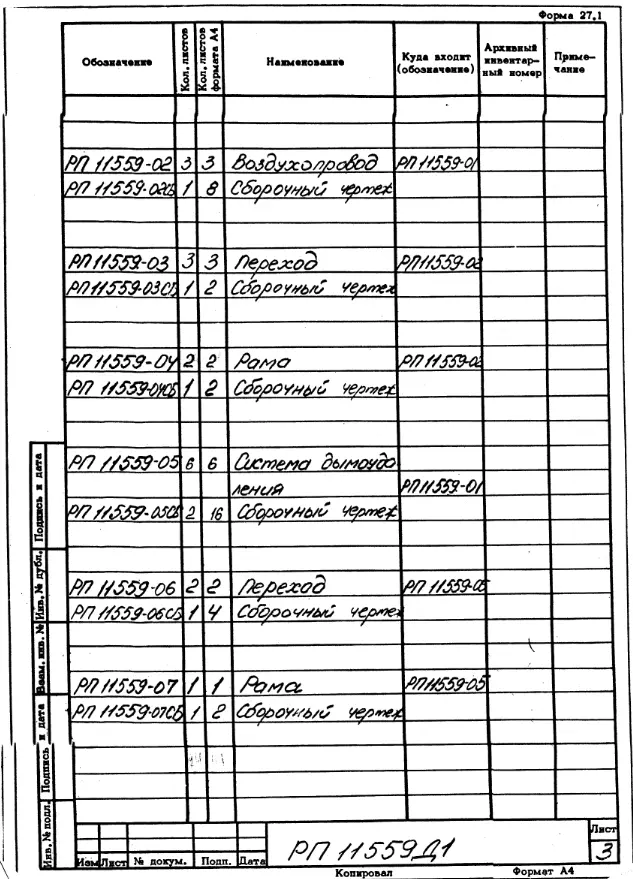 Форма 27.1
Обозначение Кол. листов Кол. листов формата А4 Наименование Куда входит (обозначение) Архивный инвентар- ный номер Приме- чание
РП 11559-02 3 3 Воздухопровод РП 11559-01
РП 11559-02СБ 1 8 Сборочный чертеж
РП 11559-03 3 3 Переход РП 11559-02
РП 11559-03СБ 1 2 Сборочный чертеж
РП 11559-04 2 2 Рама РП 11559-02
РП 11559-04СБ 1 2 Сборочный чертеж
РП 11559-05 6 6 Система дымоуда
ления РП 11559-01
РП 11559-05СБ 2 16 Сборочный чертеж
РП 11559-06 2 2 Переход РП 11559-05
РП 11559-06СБ 1 4 Сборочный чертеж
РП 11559-07 1 1 Рама РП 11559-05
РП 11559-07СБ 1 2 Сборочный чертеж
Подпись и дата
Инв. № дубл.
Взам. инв. №
Подпись и дата
Инв. № подл.
Изм Лист № докум. Подп. Дата
РП 11559Д1
Лист
3
Копировал Формат А4